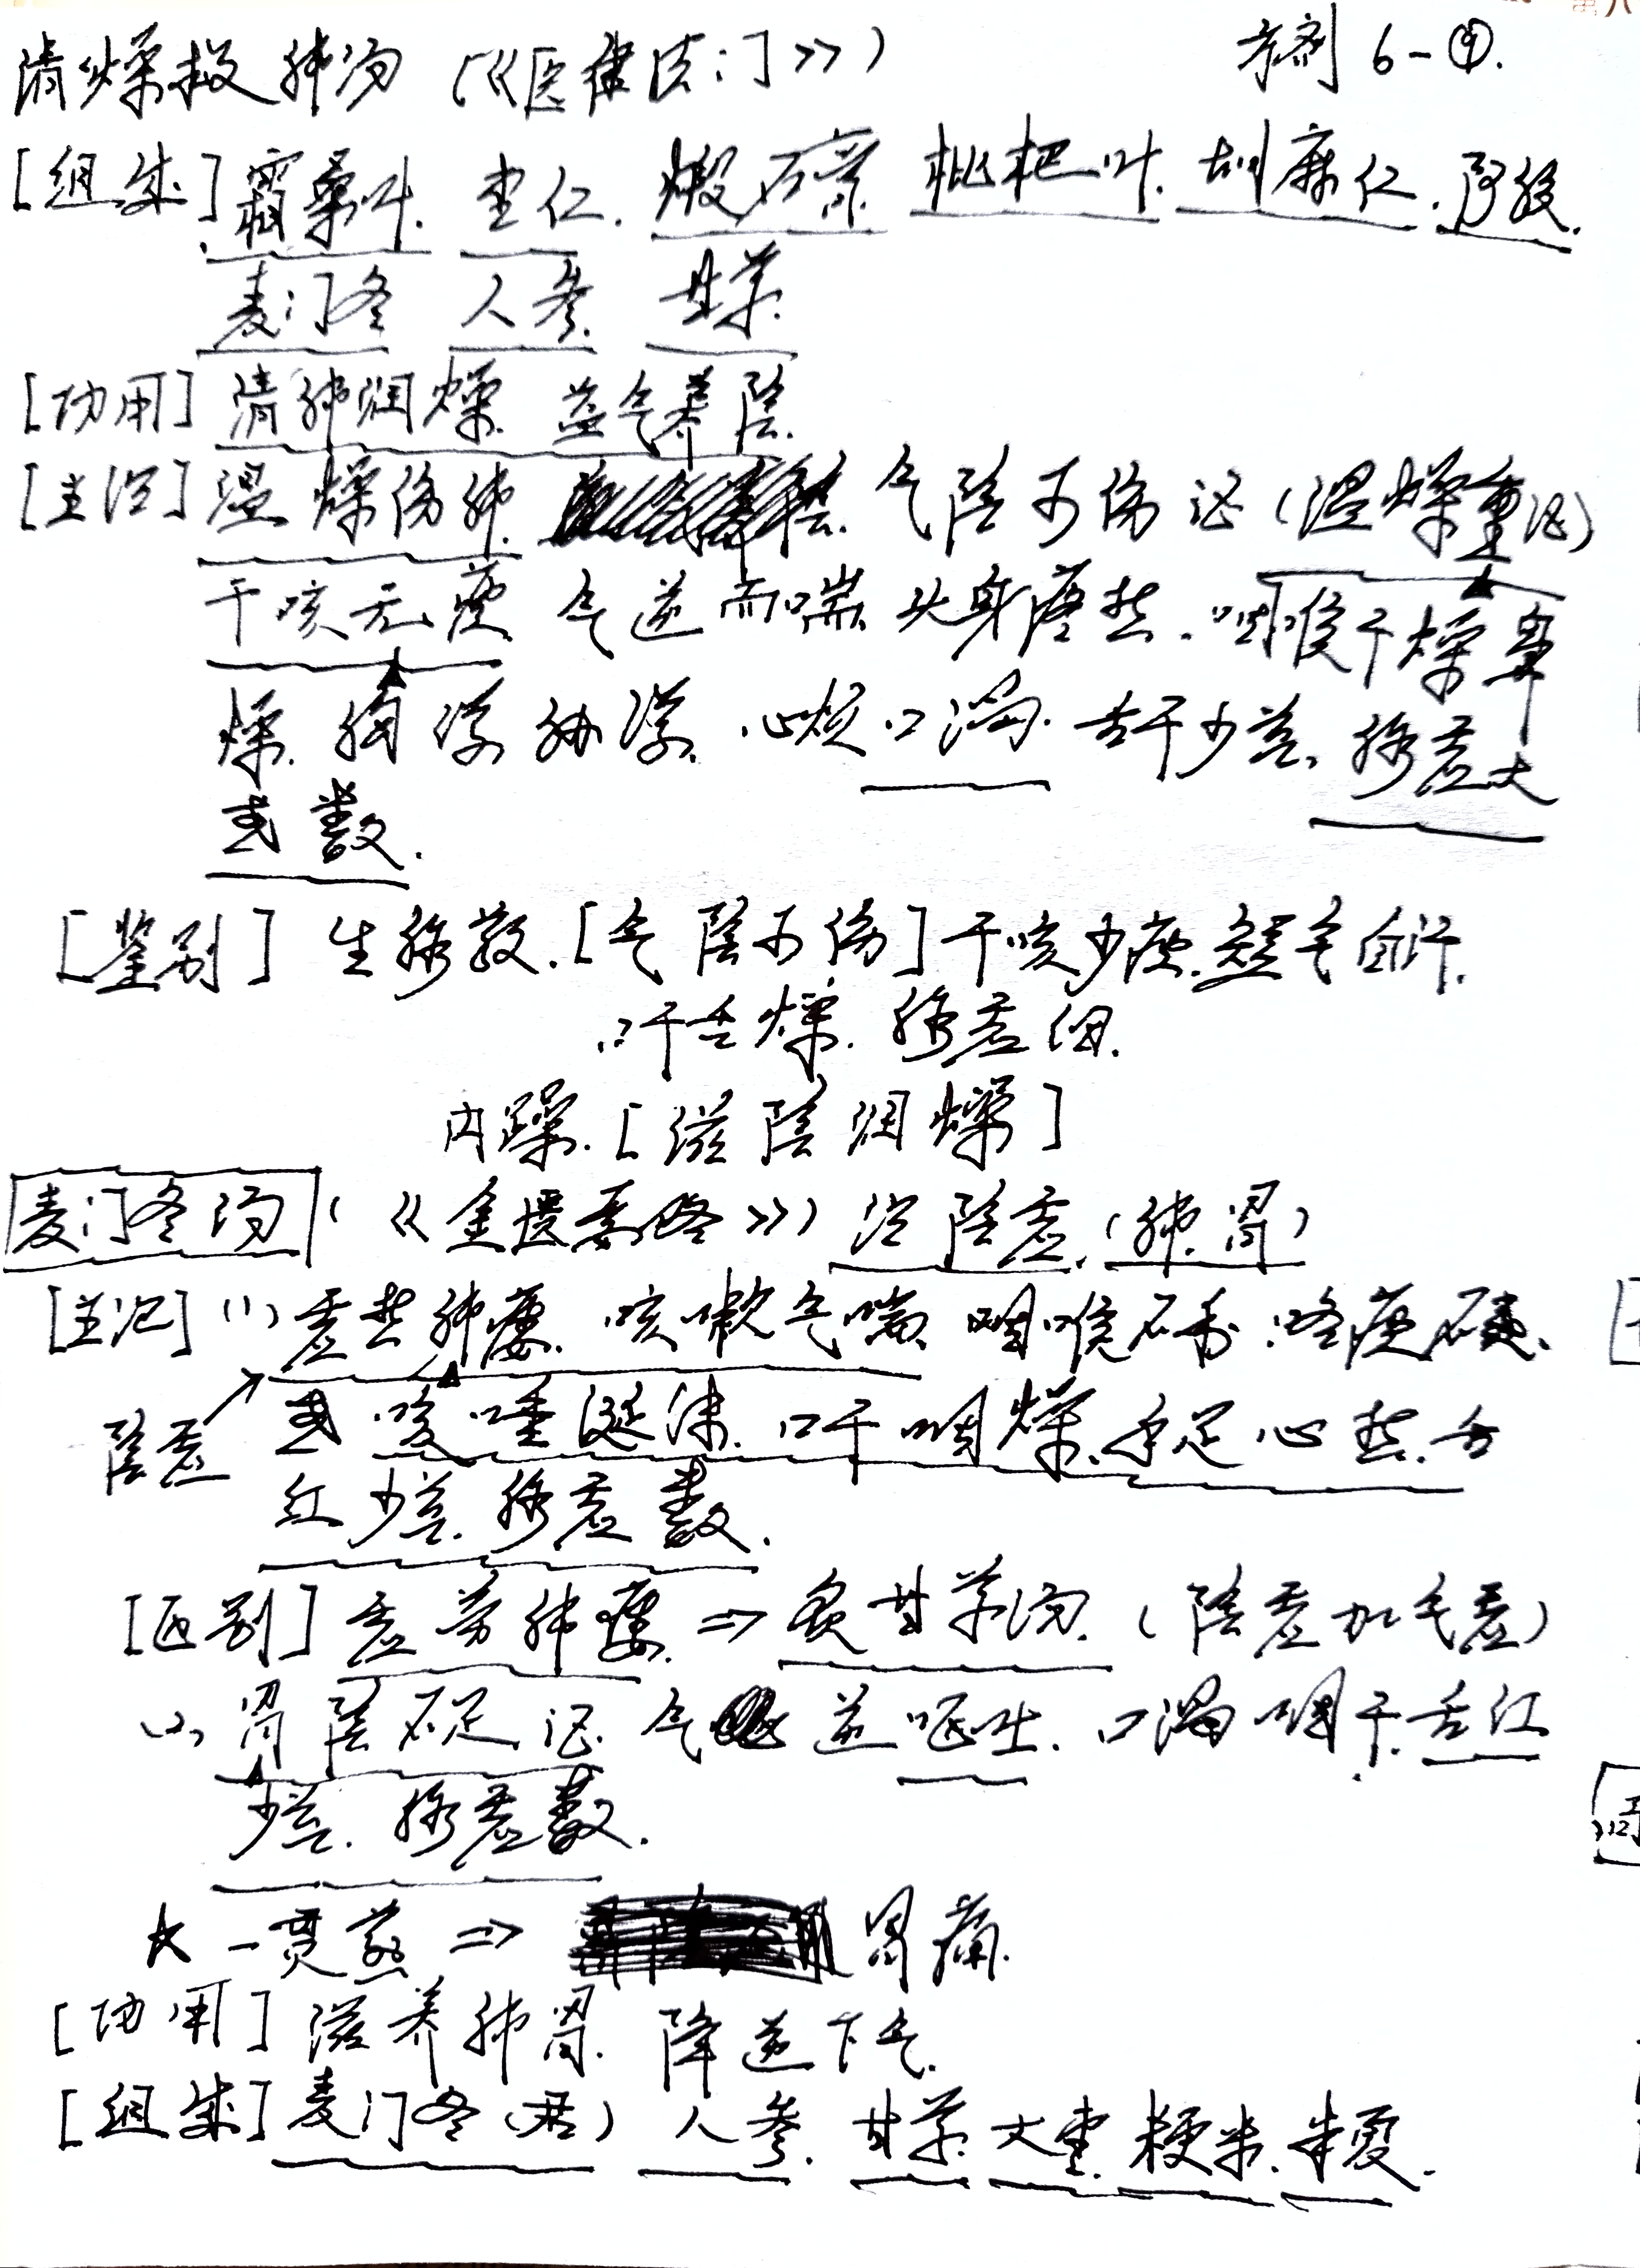 清燥救肺汤(《医律法门》) 方剂 6-④.
[组成]霜桑叶. 杏仁. 煅石膏 枇杷叶. 胡麻仁. 阿胶.
麦门冬 人参. 甘草.
[功用] 清肺润燥. 益气养阴.
[主治] 温燥伤肺. 气阴两伤证(温燥重证)
干咳无痰 气逆而喘. 头身疼热. 咽喉干燥 鼻
燥. 胸满胁满. 心烦口渴. 舌干少苔, 脉虚大
或数.
[鉴别] 生脉散.[气阴两伤]干咳少痰. 短气自汗.
口干舌燥. 脉虚细.
内躁.[滋阴润燥]
麦门冬汤(《金匮要略》) 治阴虚.(肺.胃)
[主治](1)虚热肺痿. 咳嗽气喘 咽喉不利. 咯痰不爽.
阴虚 → 或咳唾涎沫. 口干咽燥. 手足心热. 舌
红少苔. 脉虚数.
[区别] 虚劳肺痿. ⇒ 炙甘草汤. (阴虚加气虚)
(2) 胃阴不足证. 气逆呕吐. 口渴咽干. 舌红
少苔. 脉虚数.
☆ 一贯煎 ⇒ 胃痛.
[功用] 滋养肺胃. 降逆下气.
[组成]麦门冬(君) 人参. 甘草. 大枣. 粳米. 半夏.